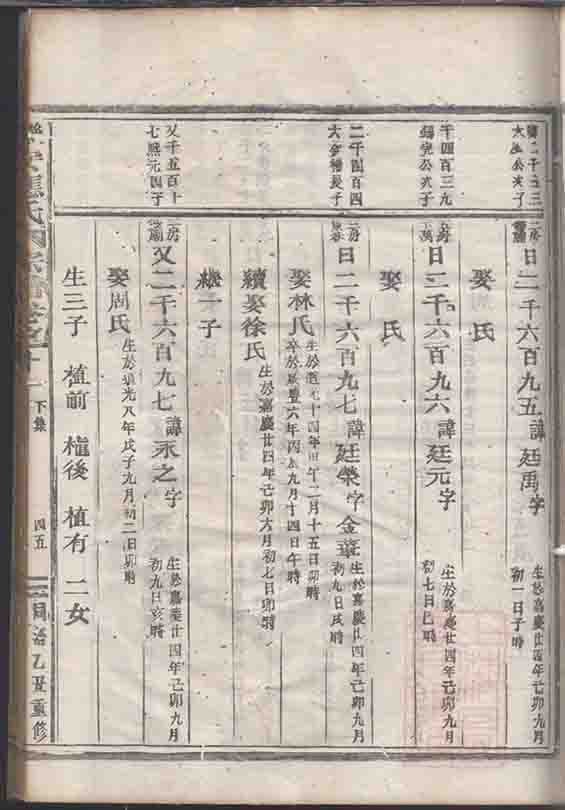 二千五三
太公次子
二房
日二千六百九五諱廷禹字
生於嘉慶廿四年己卯九月
初一日子時
娶氏
千四百三九
錫堯公次子
二房
日二千六百九六諱廷元字
生於嘉慶廿四年己卯九月
初七日巳時
娶氏
二千四百四
大金橋長子
二房
日二千六百九七諱廷榮字金華
生於嘉慶廿四年己卯九月
初九日戌時
娶林氏
生於道光十四年甲午二月十五日卯時
卒於咸豐六年丙辰九月十四日午時
續娶徐氏
生於嘉慶廿四年己卯六月初七日卯時
繼一子
又千五百十
七熙元四子
二房
又二千六百九七諱永之字
生於嘉慶廿四年己卯九月
初九日亥時
娶周氏
生於道光八年戊子九月初二日卯時
生三子 植前 植後 植有 二女
氏宗譜卷之十一
下集
四五
同治乙丑重修